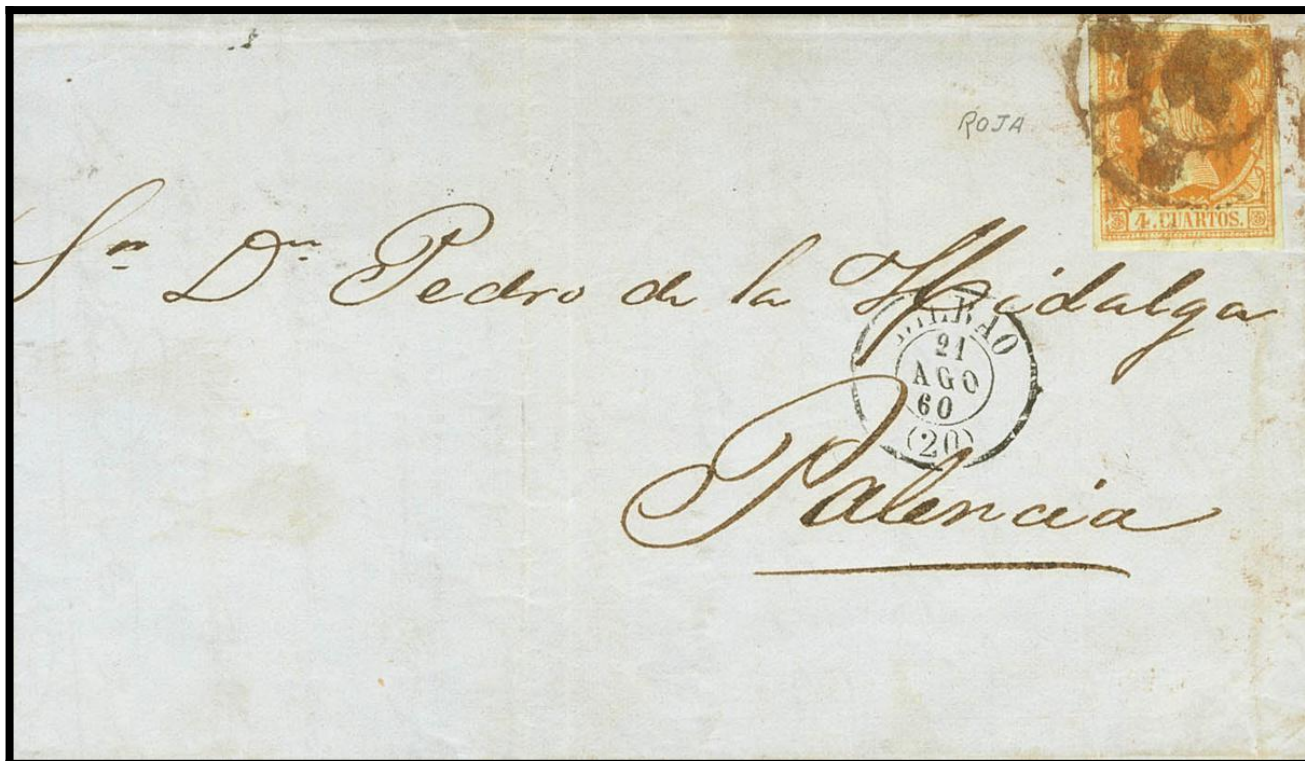 ROJA
4. CUARTOS.
Sr. Dn. Pedro de la Hidalga
BILBAO
21
AGO
60
(20)
Palencia